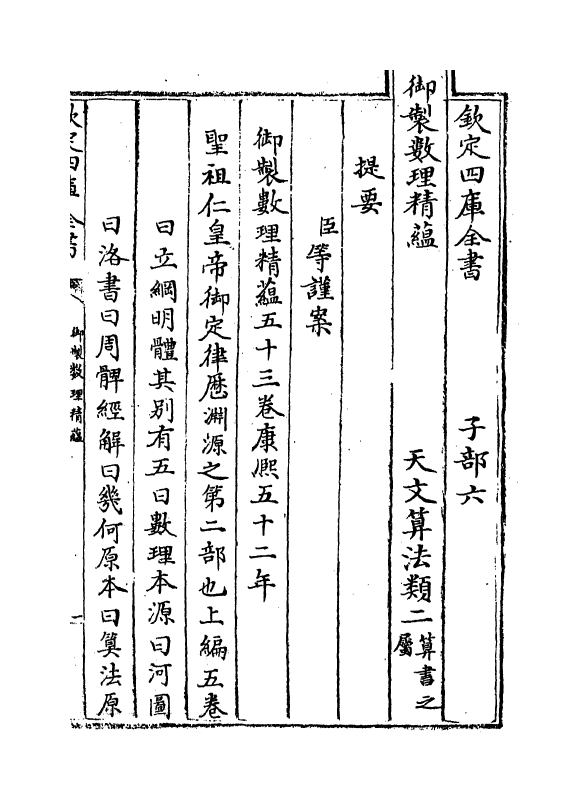 欽定四庫全書　子部六
御製數理精蘊　天文算法類二算書之屬
提要
臣等謹案
御製數理精蘊五十三卷康熈五十二年
聖祖仁皇帝御定律厯淵源之第二部也上編五卷
曰立綱明體其别有五曰數理本源曰河圖
曰洛書曰周髀經解曰幾何原本曰算法原
欽定四庫全書
御製數理精蘊
一